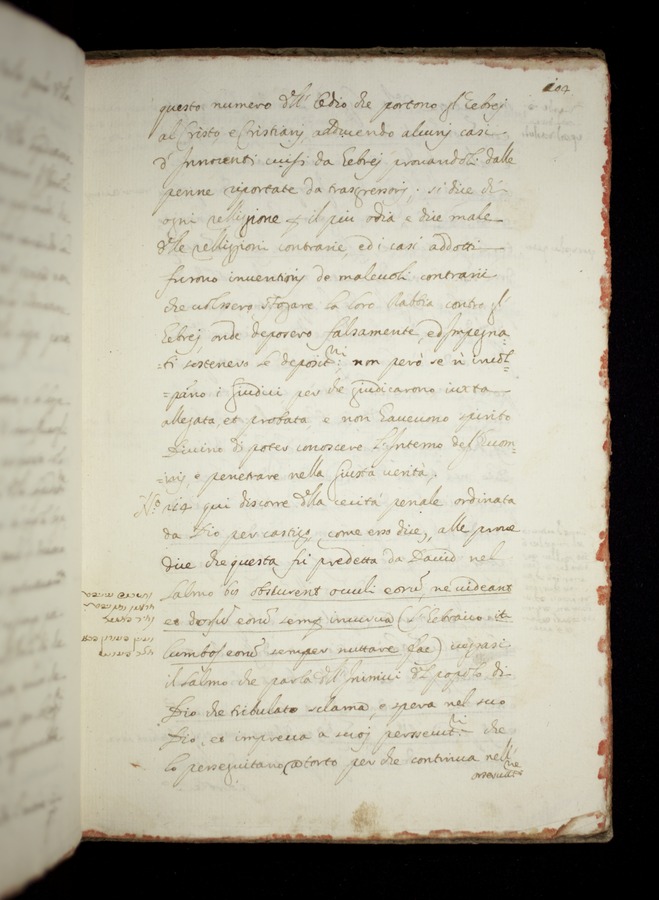 104
questo numero dell' Odio che portono gl' Eebrej
al Cristo, e Cristiani, adducendo alcuni casi
d' Innocenti uccisi da Eebrej provandoli dalle
penne riportate da trasgressori, si dice di
ogni relligione il piu odia e dice male
delle relligioni contrarie, ed i casi addotti
furono inventioni de malevoli contrarii
che volsero sfogare la loro Rabbia contro gl'
Eebrej, onde deposero falsamente, ed Impegna-
-ti sostenero le deposit.ni; non però se n' incol-
-pano i Giudici per che giudicarono iuxta
allegata, et probata, e non havevono spirito
Divino di poter conoscere l' Interno dell' Huom-
e penetrare nella Giusta verità.
N.º 124 qui discorre della cecità penale ordinata
da Dio per castigo, come esso dice, alle prove
dice che questa fu predetta da David nel
salmo 69 obscurent occuli eorũ ne videant
et dorsũ eorũ semp incurva (l' Ebraico it
lumbos eorũ semper nuttare fac)
il salmo che parla dell' Inimici del popolo di
Dio che tribulato sclama, e spera nel suo
Dio, et impreca a suoj persecut.ri che
lo perseguitano a torto per che continua nell'